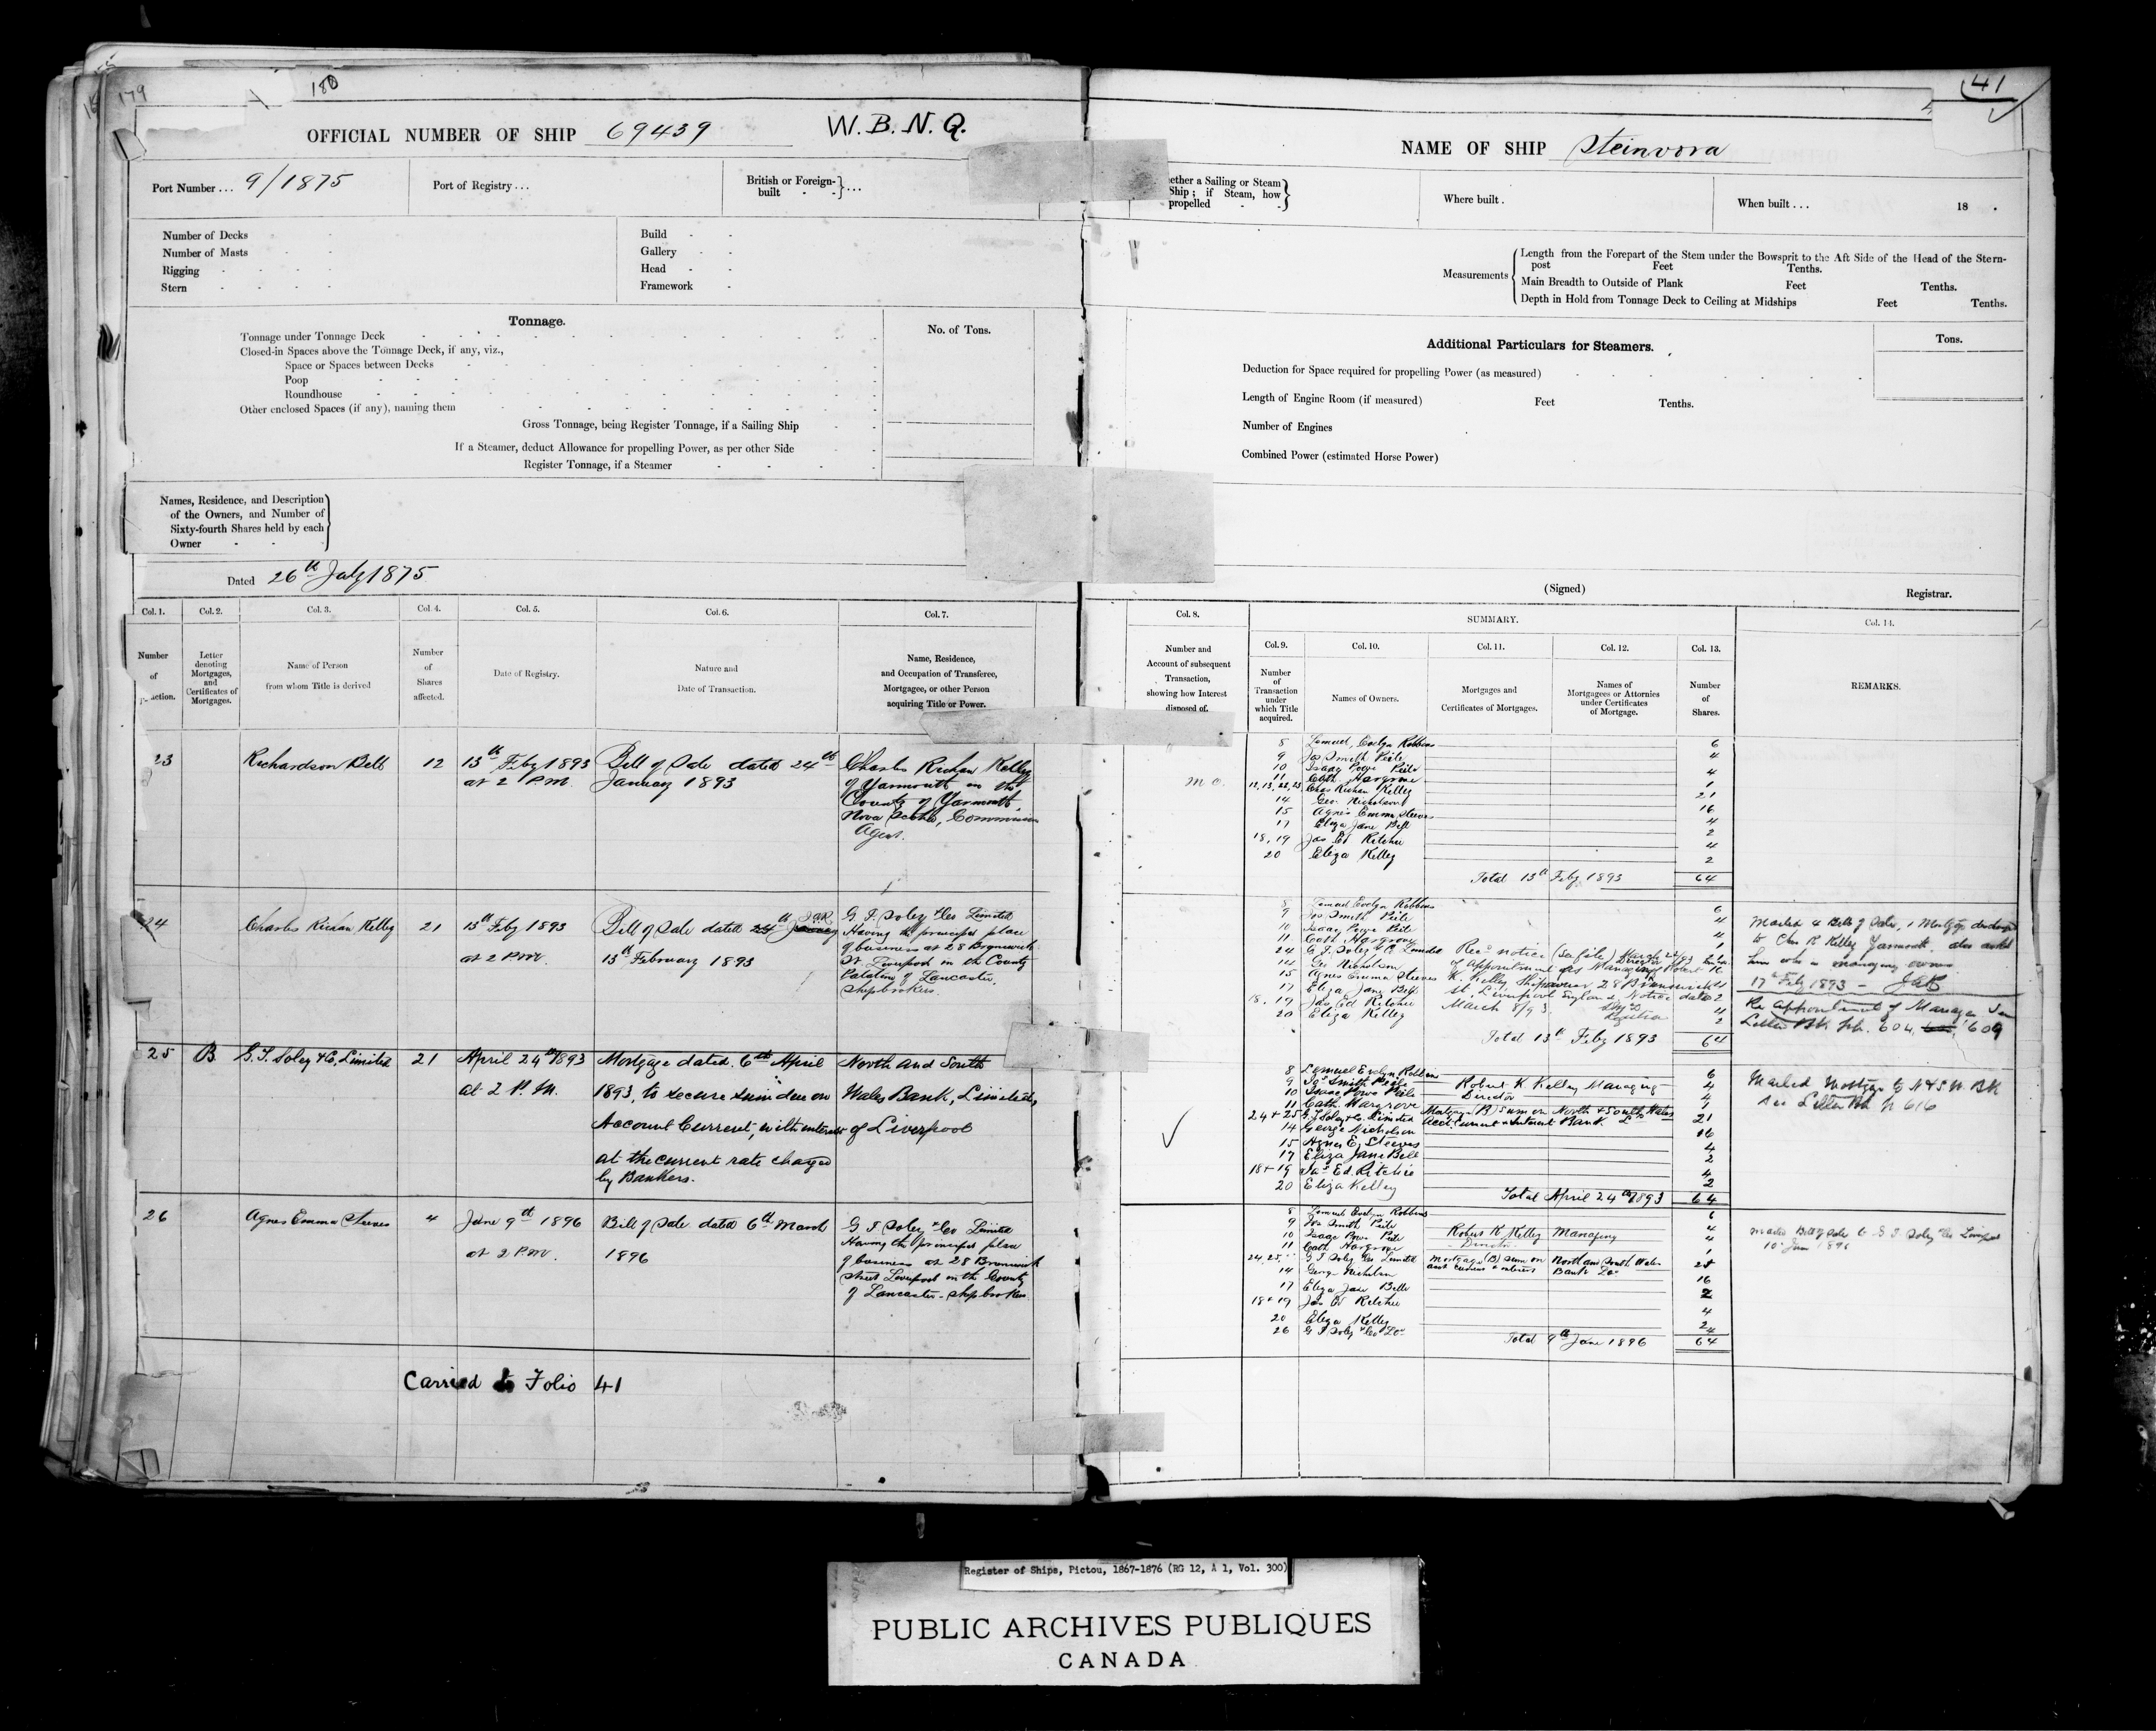 179
180
OFFICIAL NUMBER OF SHIP 69439 W. B. N. Q.
Port Number ... 9/1875
Port of Registry ...
British or Foreign-
built - - } ...
Number of Decks
Number of Masts
Rigging
Stern
Build
Gallery
Head
Framework
Tonnage.
No. of Tons.
Tonnage under Tonnage Deck
Closed-in Spaces above the Tonnage Deck, if any, viz.,
Space or Spaces between Decks
Poop
Roundhouse
Other enclosed Spaces (if any), naming them
Gross Tonnage, being Register Tonnage, if a Sailing Ship
If a Steamer, deduct Allowance for propelling Power, as per other Side
Register Tonnage, if a Steamer
Names, Residence, and Description
of the Owners, and Number of
Sixty-fourth Shares held by each
Owner
Dated 26th July 1875
Col. 1. Col. 2. Col. 3. Col. 4. Col. 5. Col. 6. Col. 7.
Number
of
action.
Letter
denoting
Mortgages,
and
Certificates of
Mortgages.
Name of Person
from whom Title is derived
Number
of
Shares
affected.
Date of Registry.
Nature and
Date of Transaction.
Name, Residence,
and Occupation of Transferee,
Mortgagee, or other Person
acquiring Title or Power.
23
Richardson Bell
12
13th Feby 1893
at 2 P.M.
Bill of Sale dated 24th
January 1893
Charles Richan Kelley
of Yarmouth in the
County of Yarmouth,
Nova Scotia, Commission
Agent.
24
Charles Richan Kelley
21
13th Feby 1893
at 2 P.M.
Bill of Sale dated 24th January
13th February 1893
G. T. Soley & Co Limited
Having the principal place
of business at 28 Brunswick
St. Liverpool in the County
Palatine of Lancaster,
Shipbrokers.
25
B.
G. T. Soley & Co, Limited
21
April 24th 1893
at 2 P.M.
Mortgage dated 6th April
1893, to secure sum due on
Account Current, with interest
at the current rate charged
by Bankers.
North and South
Wales Bank, Limited,
of Liverpool
26
Agnes Emma Steeves
4
June 9th 1896
at 2 P.M.
Bill of Sale dated 6th March
1896
G. T. Soley & Co Limited
Having the principal place
of business at 28 Brunswick
Street Liverpool in the County
of Lancaster - Shipbrokers.
Carried to Folio 41
41
NAME OF SHIP Steinvora
ether a Sailing or Steam
Ship; if Steam, how
propelled
Where built .
When built ... 18 .
Measurements
Length from the Forepart of the Stem under the Bowsprit to the Aft Side of the Head of the Stern-
post Feet Tenths.
Main Breadth to Outside of Plank Feet Tenths.
Depth in Hold from Tonnage Deck to Ceiling at Midships Feet Tenths.
Additional Particulars for Steamers.
Tons.
Deduction for Space required for propelling Power (as measured)
Length of Engine Room (if measured) Feet Tenths.
Number of Engines
Combined Power (estimated Horse Power)
(Signed)
Registrar.
Col. 8.
SUMMARY.
Col. 14.
Number and
Account of subsequent
Transaction,
showing how Interest
disposed of.
Col. 9. Col. 10. Col. 11. Col. 12. Col. 13.
Number
of
Transaction
under
which Title
acquired.
Names of Owners.
Mortgages and
Certificates of Mortgages.
Names of
Mortgagees or Attornies
under Certificates
of Mortgage.
Number
of
Shares.
REMARKS.
8 Lemuel Evelyn Robbins 6
9 Jos Smith Peile 4
10 Isaac Powe Peile 4
11 Cath. Hargrove 1
12, 13, 22, 23 Chas Richan Kelley 21
14 Geo. Nicholson 16
15 Agnes Emma Steeves 4
17 Eliza Jane Bell 2
18, 19 Jas Ed Ritchie 4
20 Eliza Kelley 2
Total 13th Feby 1893 64
8 Lemuel Evelyn Robbins 6
9 Jos Smith Peile 4
10 Isaac Powe Peile 4
11 Cath Hargrove 1
24 G. T. Soley & Co Limited
14 Geo Nicholson
15 Agnes Emma Steeves 4
17 Eliza Jane Bell 2
18, 19 Jas Ed Ritchie 4
20 Eliza Kelley 2
Recd notice (See file) March 22/93
of Appointment as Managing Director Robert K
K. Kelley Shipowner 28 Brunswick
St. Liverpool England Notice dated
March 8/93
Total 13th Feby 1893 64
Mailed 4 Bills of Sale, 1 Mortgage discharged
to Chas R Kelley Yarmouth also asked
him who is managing owner
17th Feby 1893 -
Re Appointment of Manager See
Letter Bk. fol. 604, 609
8 Lemuel Evelyn Robbins 6
9 Jos Smith Peile 4
10 Isaac Powe Peile 4
11 Cath Hargrove 1
24 + 25 G. T. Soley & Co Limited 21
14 George Nicholson 16
15 Agnes E. Steeves 4
17 Eliza Jane Bell 2
18 + 19 Jas Ed. Ritchie 4
20 Eliza Kelley 2
Robert K Kelley Managing
Director
Mortgage (B) sum on North & South Wales
Acct Current & Interest Bank. Ld
Total April 24th 1893 64
Mailed Mortgage to N & S W. Bk
See Letter Bk p 616
8 Lemuel Evelyn Robbins 6
9 Jos Smith Peile 4
10 Isaac Powe Peile 4
11 Cath Hargrove 1
24, 25 G T Soley & Co Limited
14 George Nicholson 16
17 Eliza Jane Bell 2
18 + 19 Jas Ed Ritchie 4
20 Eliza Kelley 2
26 G T Soley & Co Ld 4
Robert K Kelley Managing
Director
Mortgage (B) sum on North and South Wales
acct current & interest Bank Ld
Total 9th June 1896 64
Mailed Bill of Sale to G T Soley & Co Liverpool
10th June 1896
Register of Ships, Pictou, 1867-1876 (RG 12, A 1, Vol. 300)
PUBLIC ARCHIVES PUBLIQUES
CANADA